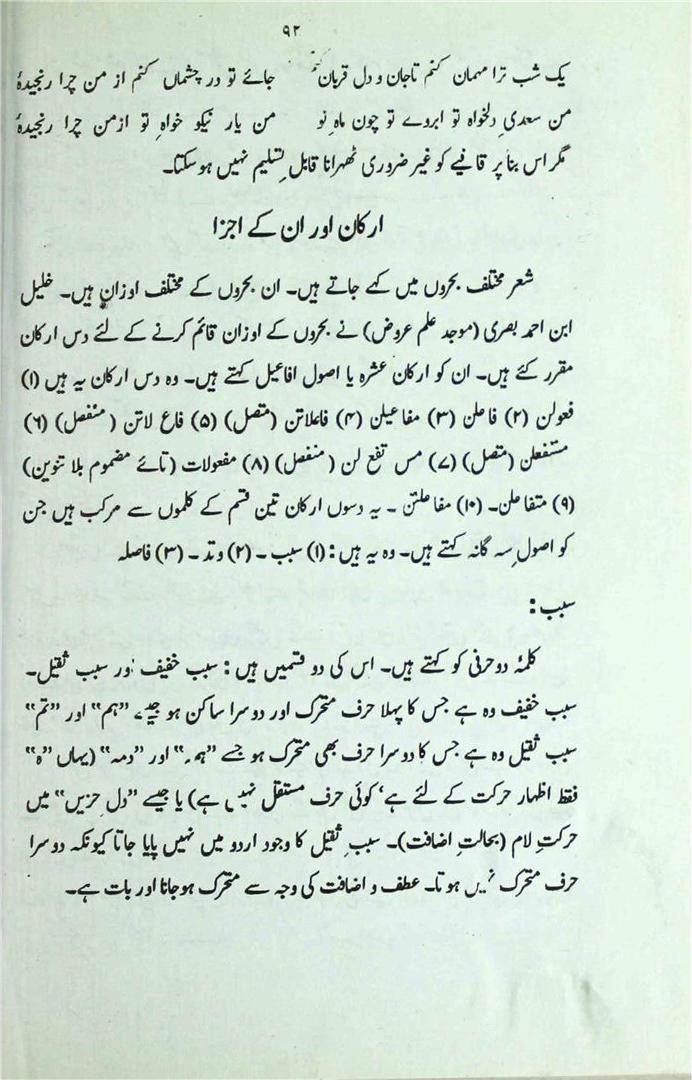 ۹۲
یک شب ترا مہمان کنم تاجان و دل قربان کنم جائے تو در چشماں کنم از من چرا رنجیدۂ
من سعدیِ دلخواہ تو ابروے تو چون ماہِ نو من یار نیکو خواہِ تو ازمن چرا رنجیدۂ
مگر اس بنا پر قافیے کو غیر ضروری ٹھہرانا قابلِ تسلیم نہیں ہو سکتا۔
ارکان اور ان کے اجزا
شعر مختلف بحروں میں کہے جاتے ہیں۔ ان بحروں کے مختلف اوزان ہیں۔ خلیل
ابن احمد بصری (موجد علم عروض) نے بحروں کے اوزان قائم کرنے کے لئے دس ارکان
مقرر کئے ہیں۔ ان کو ارکان عشرہ یا اصول افاعیل کہتے ہیں۔ وہ دس ارکان یہ ہیں (۱)
فعولن (۲) فاعلن (۳) مفاعیلن (۴) فاعلاتن (متصل) (۵) فاع لاتن (منفصل) (۶)
مستفعلن (متصل) (۷) مس تفع لن (منفصل) (۸) مفعولات (تائے مضموم بلا تنوین)
(۹) متفاعلن۔ (۱۰) مفاعلتن ۔ یہ دسوں ارکان تین قسم کے کلموں سے مرکب ہیں جن
کو اصولِ سہ گانہ کہتے ہیں۔ وہ یہ ہیں : (۱) سبب ۔ (۲) وتد ۔ (۳) فاصلہ
سبب :
کلمۂ دوحرفی کو کہتے ہیں۔ اس کی دو قسمیں ہیں : سبب خفیف اور سبب ثقیل۔
سبب خفیف وہ ہے جس کا پہلا حرف متحرک اور دوسرا ساکن ہو جیسے ”ہم“ اور ”تم“
سبب ثقیل وہ ہے جس کا دوسرا حرف بھی متحرک ہو جسے ”ہمہ“ اور ”دمہ“ (یہاں ”ہ“
فقط اظہار حرکت کے لئے ہے، کوئی حرف مستقل نہیں ہے) یا جیسے ”دل حزیں“ میں
حرکتِ لام (بحالتِ اضافت)۔ سببِ ثقیل کا وجود اردو میں نہیں پایا جاتا کیونکہ دوسرا
حرف متحرک نہیں ہوتا۔ عطف و اضافت کی وجہ سے متحرک ہوجانا اور بات ہے۔